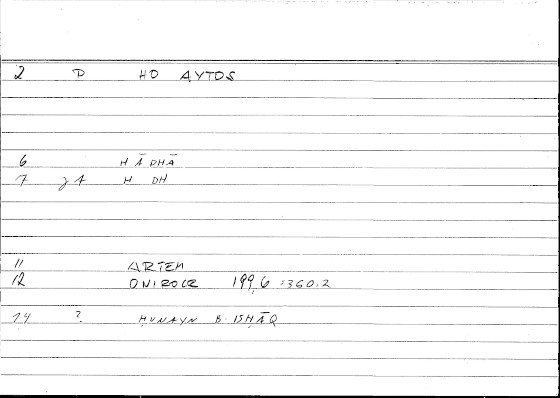 2 P HO AYTOS
6 HĀDHĀ
7 γ4 H DH
11 ARTEM
12 ONIROCR 199,6 =360.2
14 ? ḤUNAYN B. ISḤĀQ